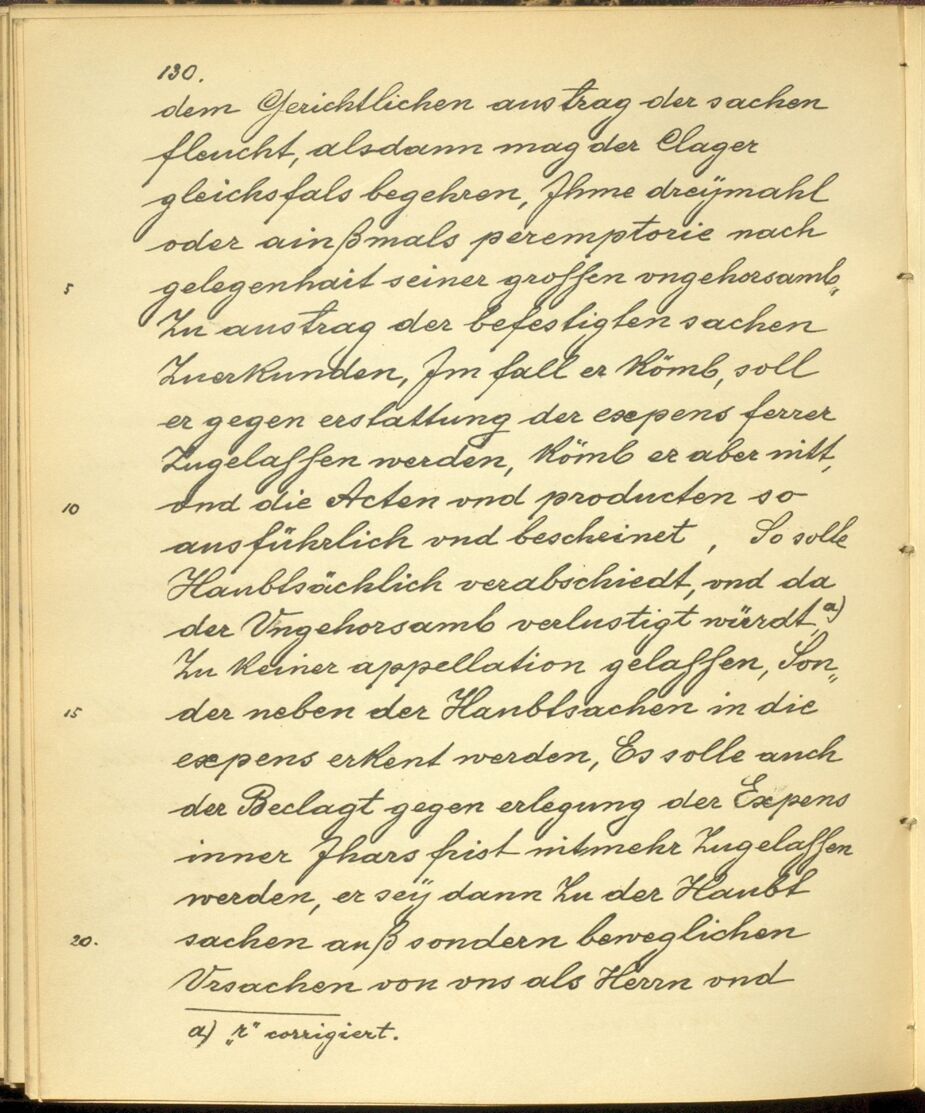 130.
dem Gerichtlichen austrag der sachen
fleucht, alsdann mag der Clager
gleichsfals begehren, Jhme dreÿmahl
oder ainßmals peremptorie nach
5 gelegenhait seiner grossen vngehorsamb„
Zu austrag der befestigten sachen
Zuerkunden, Jm fall er kömb, soll
er gegen erstattung der expens ferrer
Zugelassen werden, kömb er aber nitt,
10 vnd die Acten vnd producten so
ausführlich vnd bescheinet , So solle
Haubtsächlich verabschiedt, vnd da
der Vngehorsamb verlustigt würrdt, a)
Zu keiner appellation gelassen, Son„
15 der neben der Haubtsachen in die
expens erkent werden, Es solle auch
der Beclagt gegen erlegung der Expens
inner Jhars frist nitmehr Zugelassen
werden, er seÿ dann Zu der Haubt
20. sachen auß sondern beweglichen
Vrsachen von vns als Herrn vnd
a) „r" corrigiert.